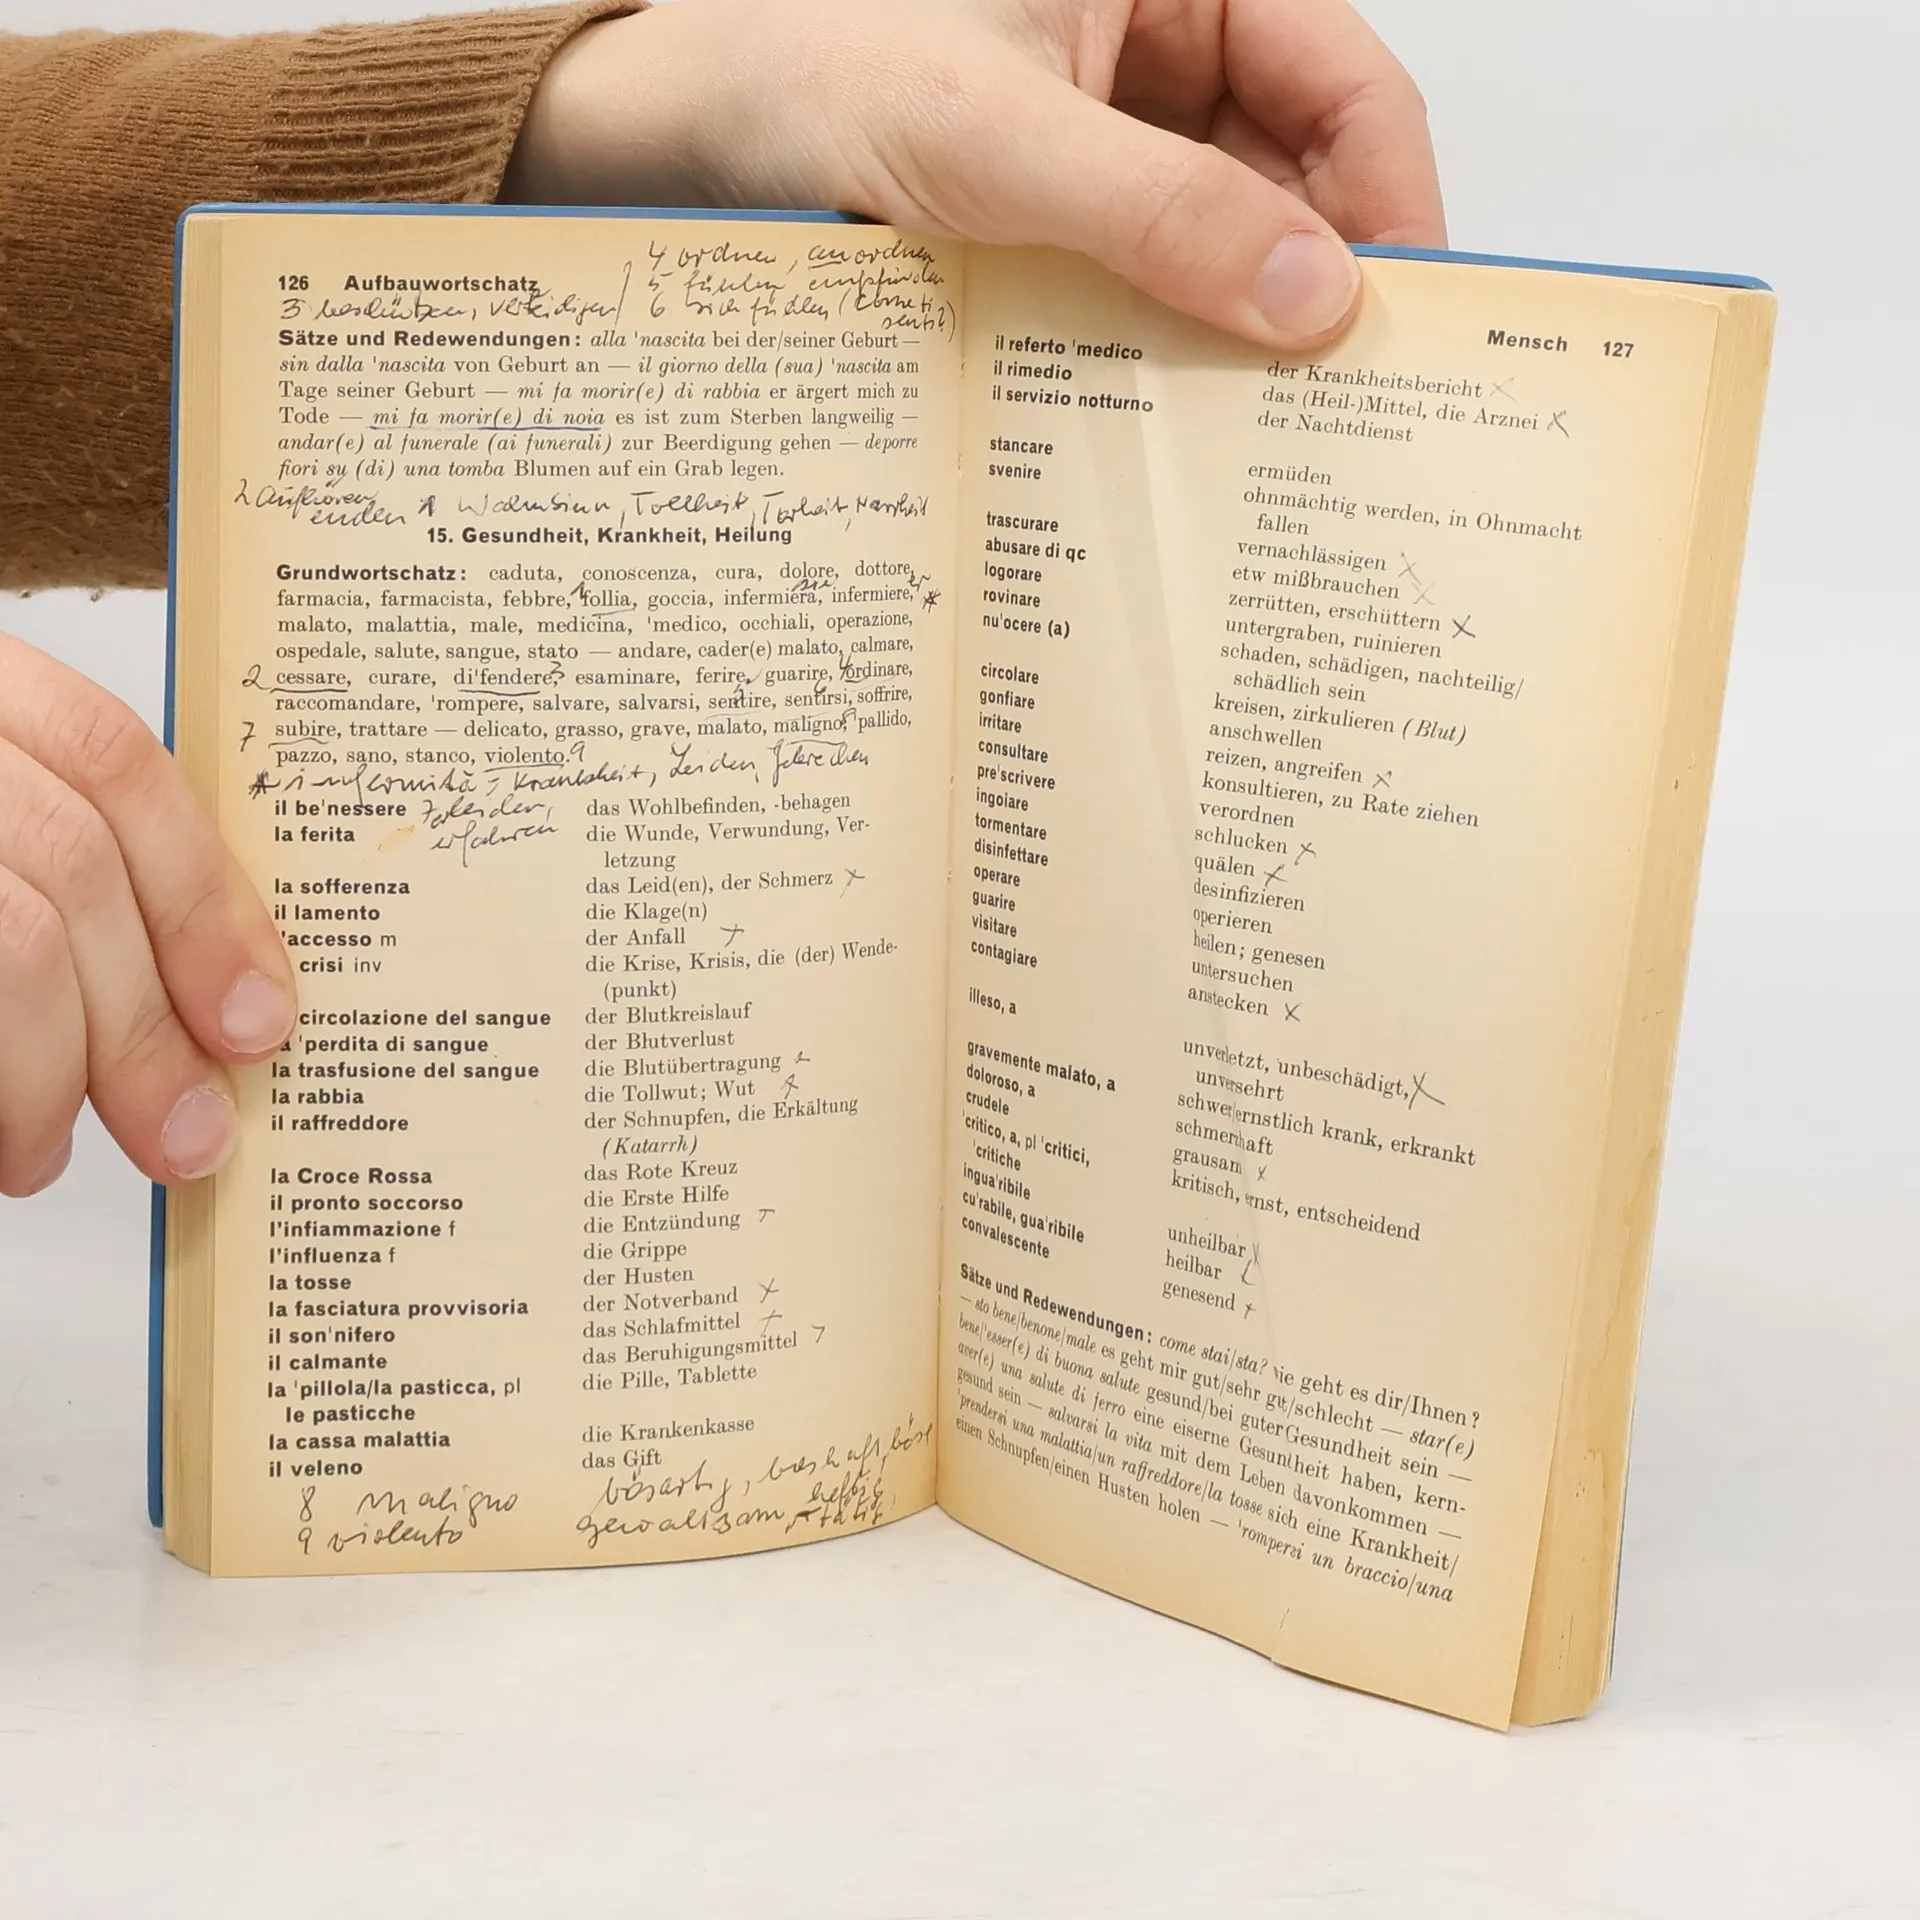 4 ordnen, anordnen
126 Aufbauwortschatz
5 fühlen empfinden
3 beschützen, verteidigen
6 sich fühlen (come ti senti?)
Sätze und Redewendungen: alla 'nascita bei der/seiner Geburt —
sin dalla 'nascita von Geburt an — il giorno della (sua) 'nascita am
Tage seiner Geburt — mi fa morir(e) di rabbia er ärgert mich zu
Tode — mi fa morir(e) di noia es ist zum Sterben langweilig —
andar(e) al funerale (ai funerali) zur Beerdigung gehen — deporre
fiori sy (di) una tomba Blumen auf ein Grab legen.
2 aufhören enden 1 Wahnsinn, Tollheit, Torheit, Narrheit
15. Gesundheit, Krankheit, Heilung
Grundwortschatz: caduta, conoscenza, cura, dolore, dottore,
farmacia, farmacista, febbre, follia, goccia, infermiera, infermiere,
malato, malattia, male, medicina, 'medico, occhiali, operazione,
ospedale, salute, sangue, stato — andare, cader(e) malato, calmare,
2 cessare, curare, di'fendere, 3 esaminare, ferire, guarire, 4 ordinare,
raccomandare, 'rompere, salvare, salvarsi, sentire, sentirsi, soffrire,
7 subire, trattare — delicato, grasso, grave, malato, maligno, 8 pallido,
pazzo, sano, stanco, violento. 9
* infermità = Krankheit, Leiden, Gebrechen
il be'nessere das Wohlbefinden, -behagen
7 erleiden,
erfahren
la ferita die Wunde, Verwundung, Ver-
letzung
la sofferenza das Leid(en), der Schmerz
il lamento die Klage(n)
'accesso m der Anfall
crisi inv die Krise, Krisis, die (der) Wende-
(punkt)
circolazione del sangue der Blutkreislauf
a 'perdita di sangue der Blutverlust
la trasfusione del sangue die Blutübertragung
la rabbia die Tollwut; Wut
il raffreddore der Schnupfen, die Erkältung
(Katarrh)
la Croce Rossa das Rote Kreuz
il pronto soccorso die Erste Hilfe
l'infiammazione f die Entzündung
l'influenza f die Grippe
la tosse der Husten
la fasciatura provvisoria der Notverband
il son'nifero das Schlafmittel
il calmante das Beruhigungsmittel
la 'pillola/la pasticca, pl die Pille, Tablette
le pasticche
la cassa malattia die Krankenkasse
il veleno das Gift
8 maligno bösartig, boshaft, böse
9 violento gewaltsam, heftig
Mensch 127
il referto 'medico der Krankheitsbericht
il rimedio das (Heil-)Mittel, die Arznei
il servizio notturno der Nachtdienst
stancare ermüden
svenire ohnmächtig werden, in Ohnmacht
fallen
trascurare vernachlässigen
abusare di qc etw mißbrauchen
logorare zerrütten, erschüttern
rovinare untergraben, ruinieren
nu'ocere (a) schaden, schädigen, nachteilig/
schädlich sein
circolare kreisen, zirkulieren (Blut)
gonfiare anschwellen
irritare reizen, angreifen
consultare konsultieren, zu Rate ziehen
pre'scrivere verordnen
ingoiare schlucken
tormentare quälen
disinfettare desinfizieren
operare operieren
guarire heilen; genesen
visitare untersuchen
contagiare anstecken
illeso, a unverletzt, unbeschädigt,
unversehrt
gravemente malato, a schwer/ernstlich krank, erkrankt
doloroso, a schmerzhaft
crudele grausam
'critico, a, pl 'critici, kritisch, ernst, entscheidend
'critiche
ingua'ribile unheilbar
cu'rabile, gua'ribile heilbar
convalescente genesend
Sätze und Redewendungen: come stai/sta? Wie geht es dir/Ihnen?
— sto bene/benone/male es geht mir gut/sehr gut/schlecht — star(e)
bene/'esser(e) di buona salute gesund/bei guter Gesundheit sein —
aver(e) una salute di ferro eine eiserne Gesundheit haben, kern-
gesund sein — salvarsi la vita mit dem Leben davonkommen —
'prendersi una malattia/un raffreddore/la tosse sich eine Krankheit/
einen Schnupfen/einen Husten holen — 'rompersi un braccio/una